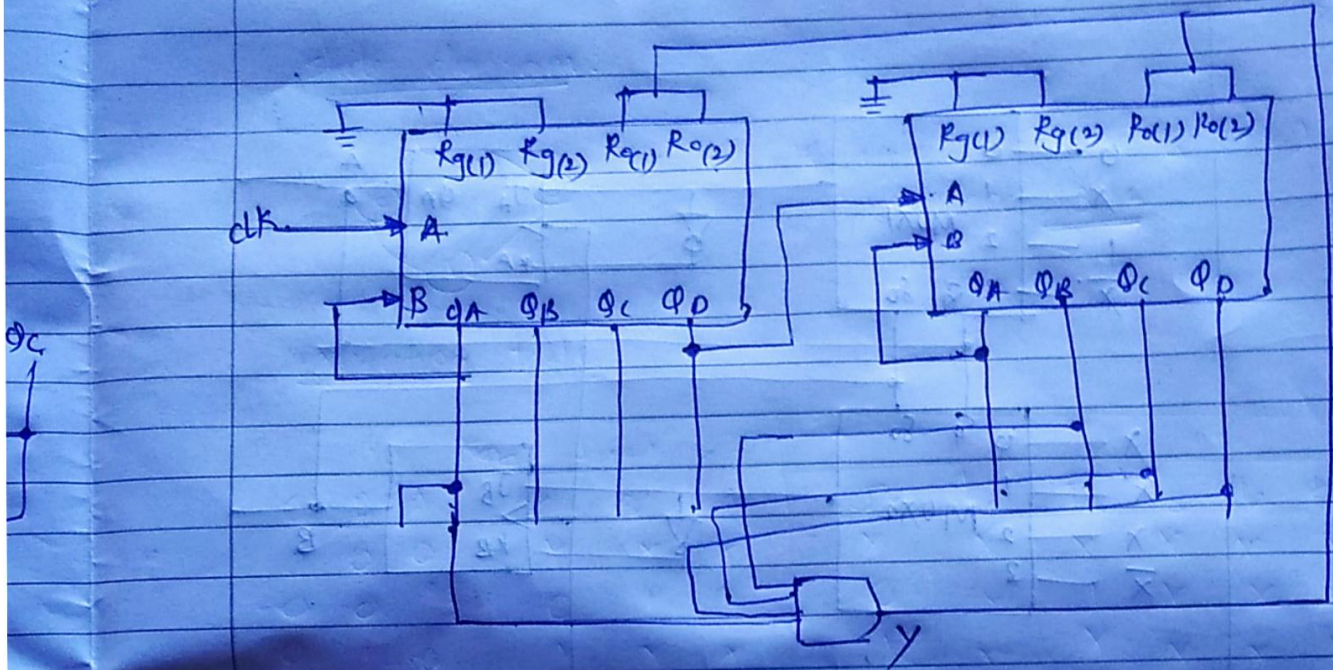 Rg(1) Rg(2) Ro(1) Ro(2)
clk A
B QA QB QC QD
Rg(1) Rg(2) Ro(1) Ro(2)
A
B
QA QB QC QD
QC
Y